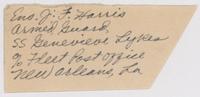 Ens. J. F. Harris
Armed Guard,
SS Genevieve Lykes
c/o Fleet Post Office
New Orleans, La